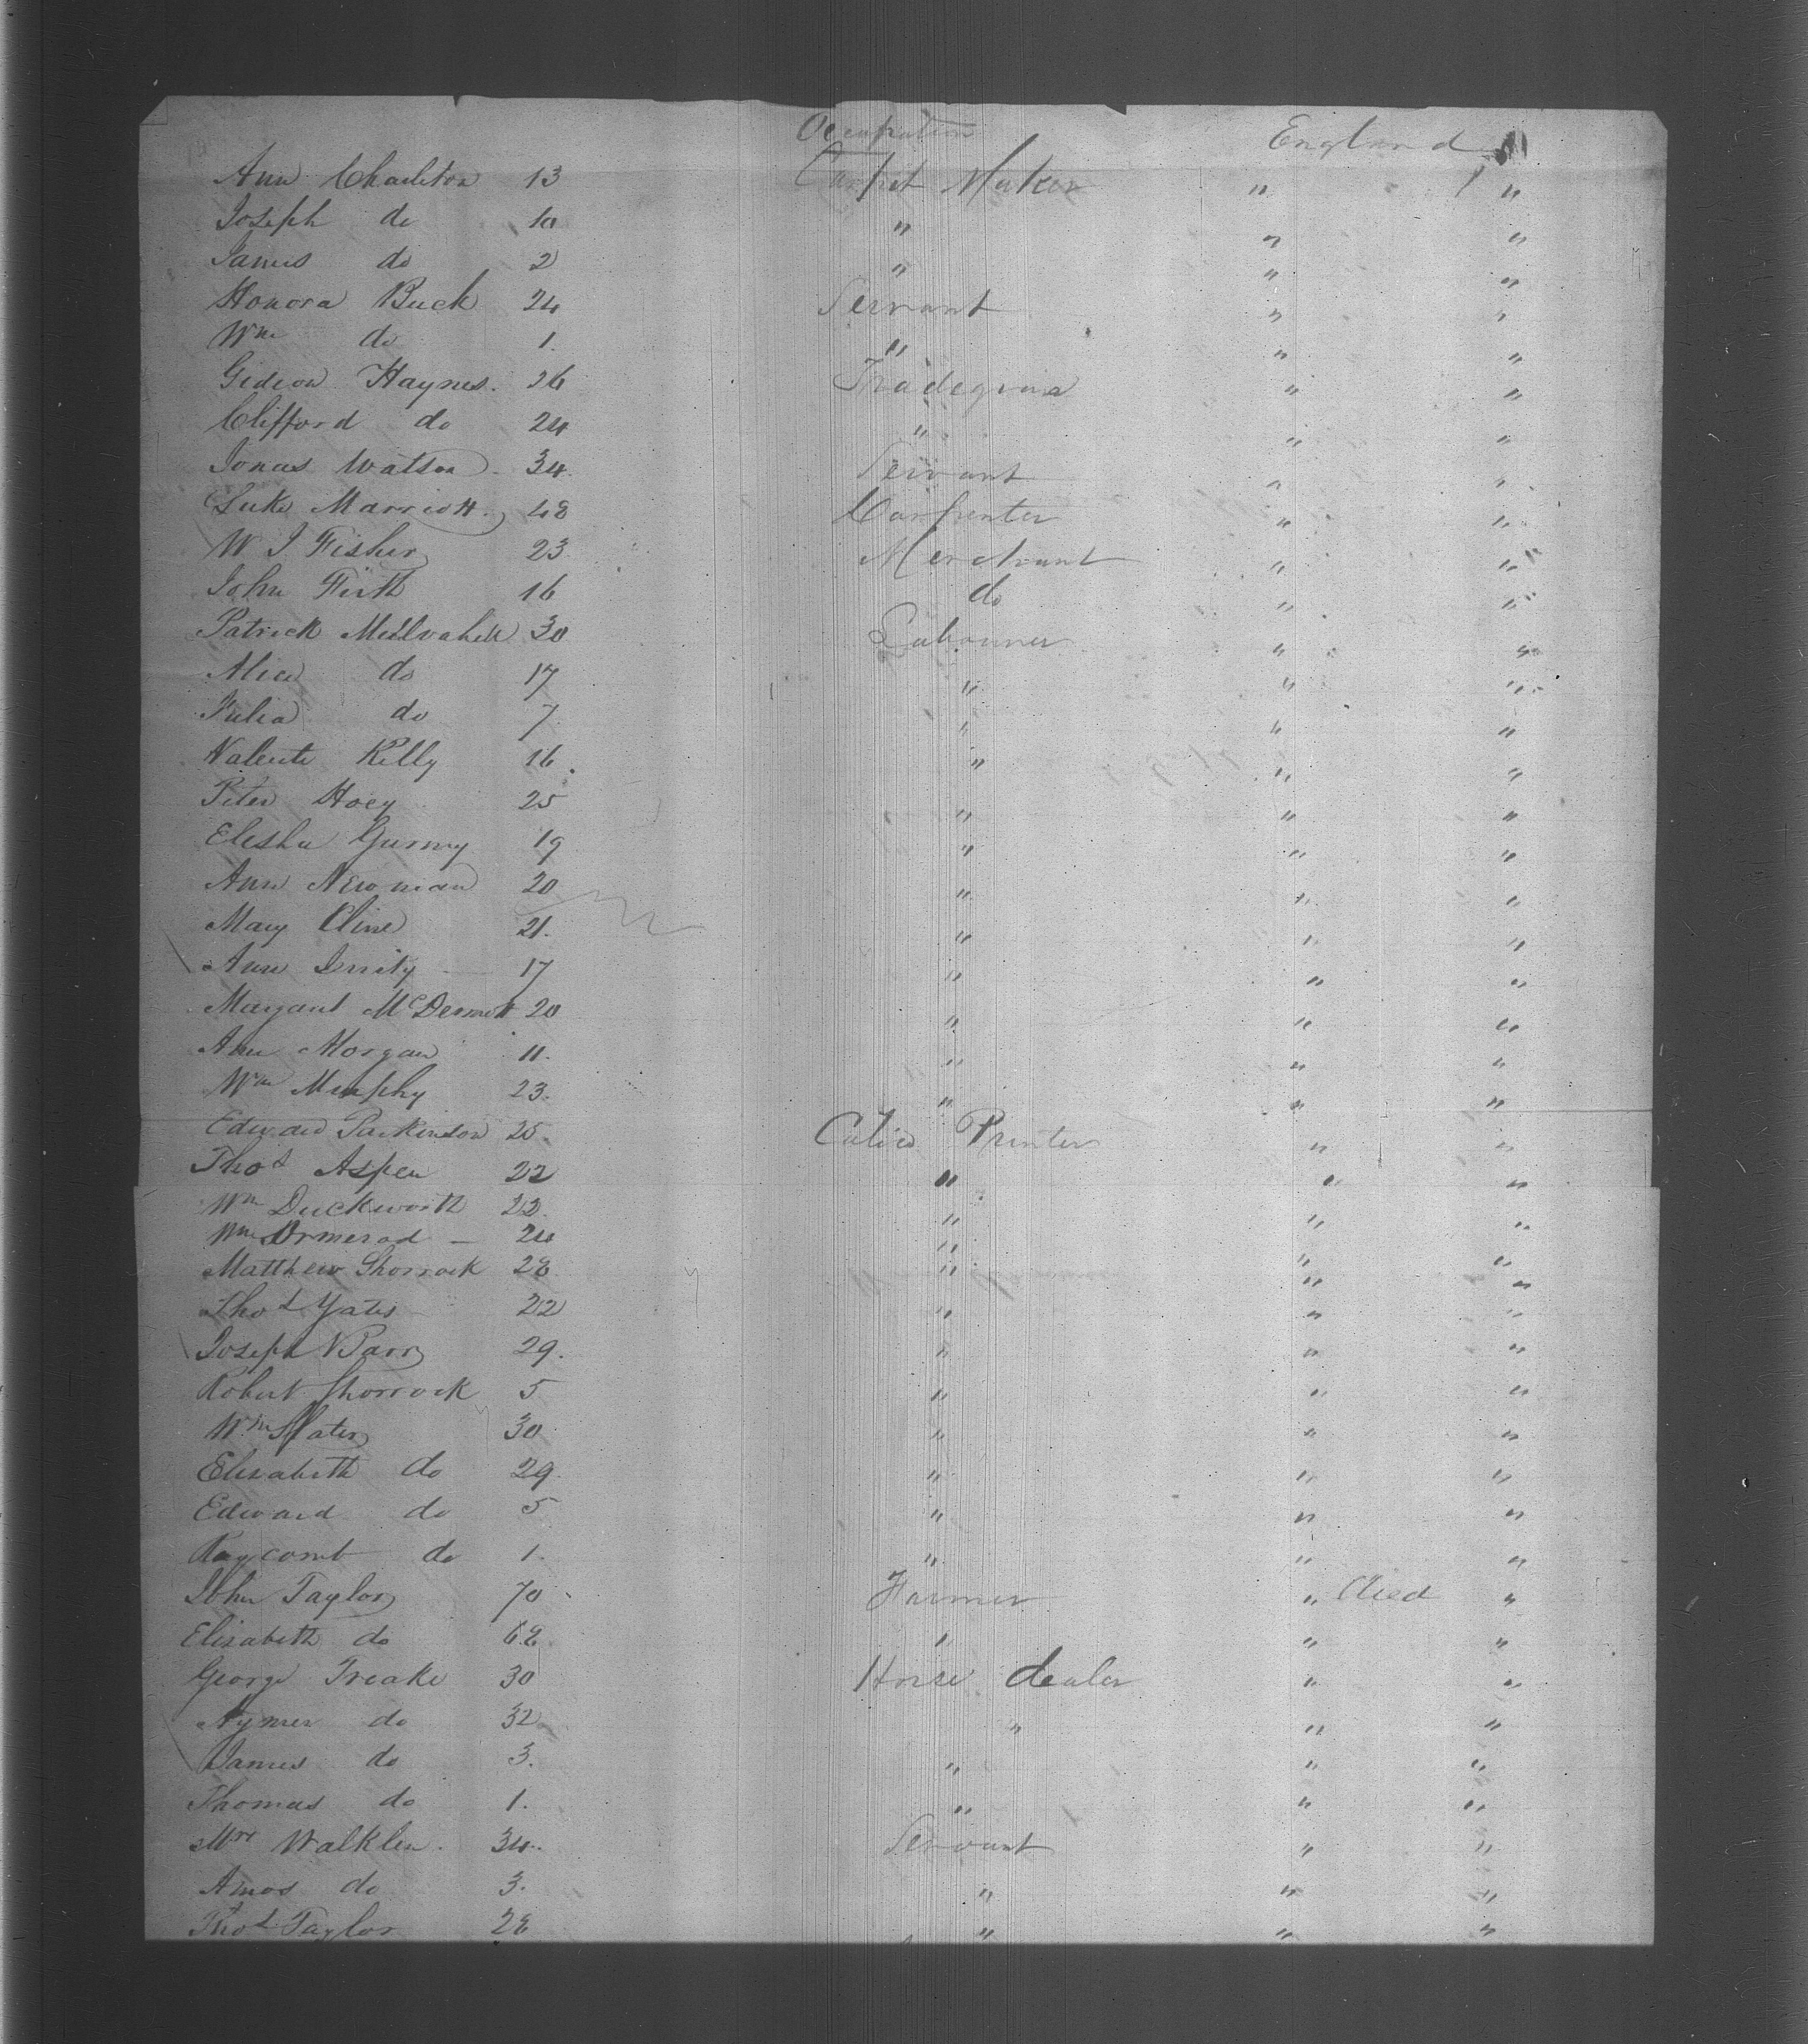 Occupation England
Ann Charleton 13 Carpet Maker " "
Joseph do 10 " " "
James do 2 " " "
Honora Buck 24 Servant " "
Wm do 1. " " "
Gideon Haynes. 26 " "
Clifford do 24 " " "
Jonas Watson 34. Servant " "
Luke Marriott. 48 Carpenter " "
W J Fisher 23 Merchant " "
John Firth 16 do " "
Patrick 30 Labourer " "
Alice do 17 " " "
Julia do 7 " " "
Valente Kelly 16. " " "
Peter Hoey 25 " " "
Elesha Gurney 19 " " "
Ann Newman 20 " " "
Mary Cline 21. " " "
Ann 17 " " "
Margaret McDermott 20 " " "
Ann Morgan 11. " " "
Wm Murphy 23. " " "
Edward Parkinson 25. Calico Printer " "
Thos Aspen 22 " " "
Wm Duckworth 22. " " "
Wm Ormerod - 24 " " "
Matthew Shorrock 28 " " "
Thos Yates 22 " " "
Joseph Barr 29. " " "
Robert Shorrock 5 " " "
Wm Slater 30 " " "
Elisabeth do 29. " " "
Edward do 5 " " "
do 1. " " "
John Taylor 70 Farmer " died "
Elisabeth do 68 " " "
George Treake 30 Horse dealer " "
do 32 " " "
James do 3. " " "
Thomas do 1. " " "
Mrs Walklen. 34. Servant " "
Amos do 3. " " "
Thos Taylor 28 " " "